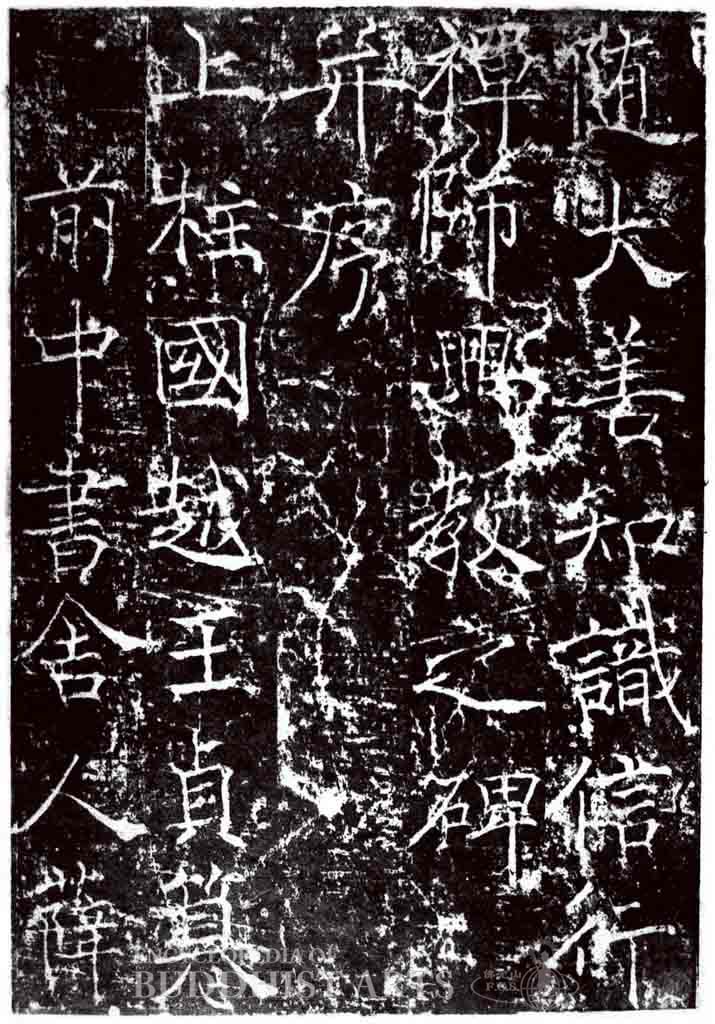 随大善知識信行
禪師興教之碑
并序
上柱國越王貞
前中書舍人薛
ENCYCLOPEDIA OF
BUDDHIST ARTS
佛光山
F.G.S.